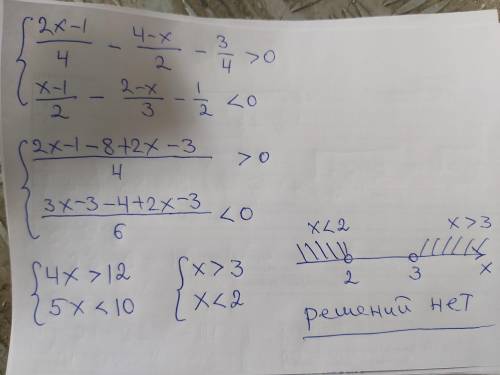 { (2x-1)/4 - (4-x)/2 - 3/4 >0
{ (x-1)/2 - (2-x)/3 - 1/2 <0
{ (2x-1-8+2x-3)/4 >0
{ (3x-3-4+2x-3)/6 <0
{ 4x>12
{ 5x<10
{ x>3
{ x<2
x<2 x>3
2 3 x
решений нет